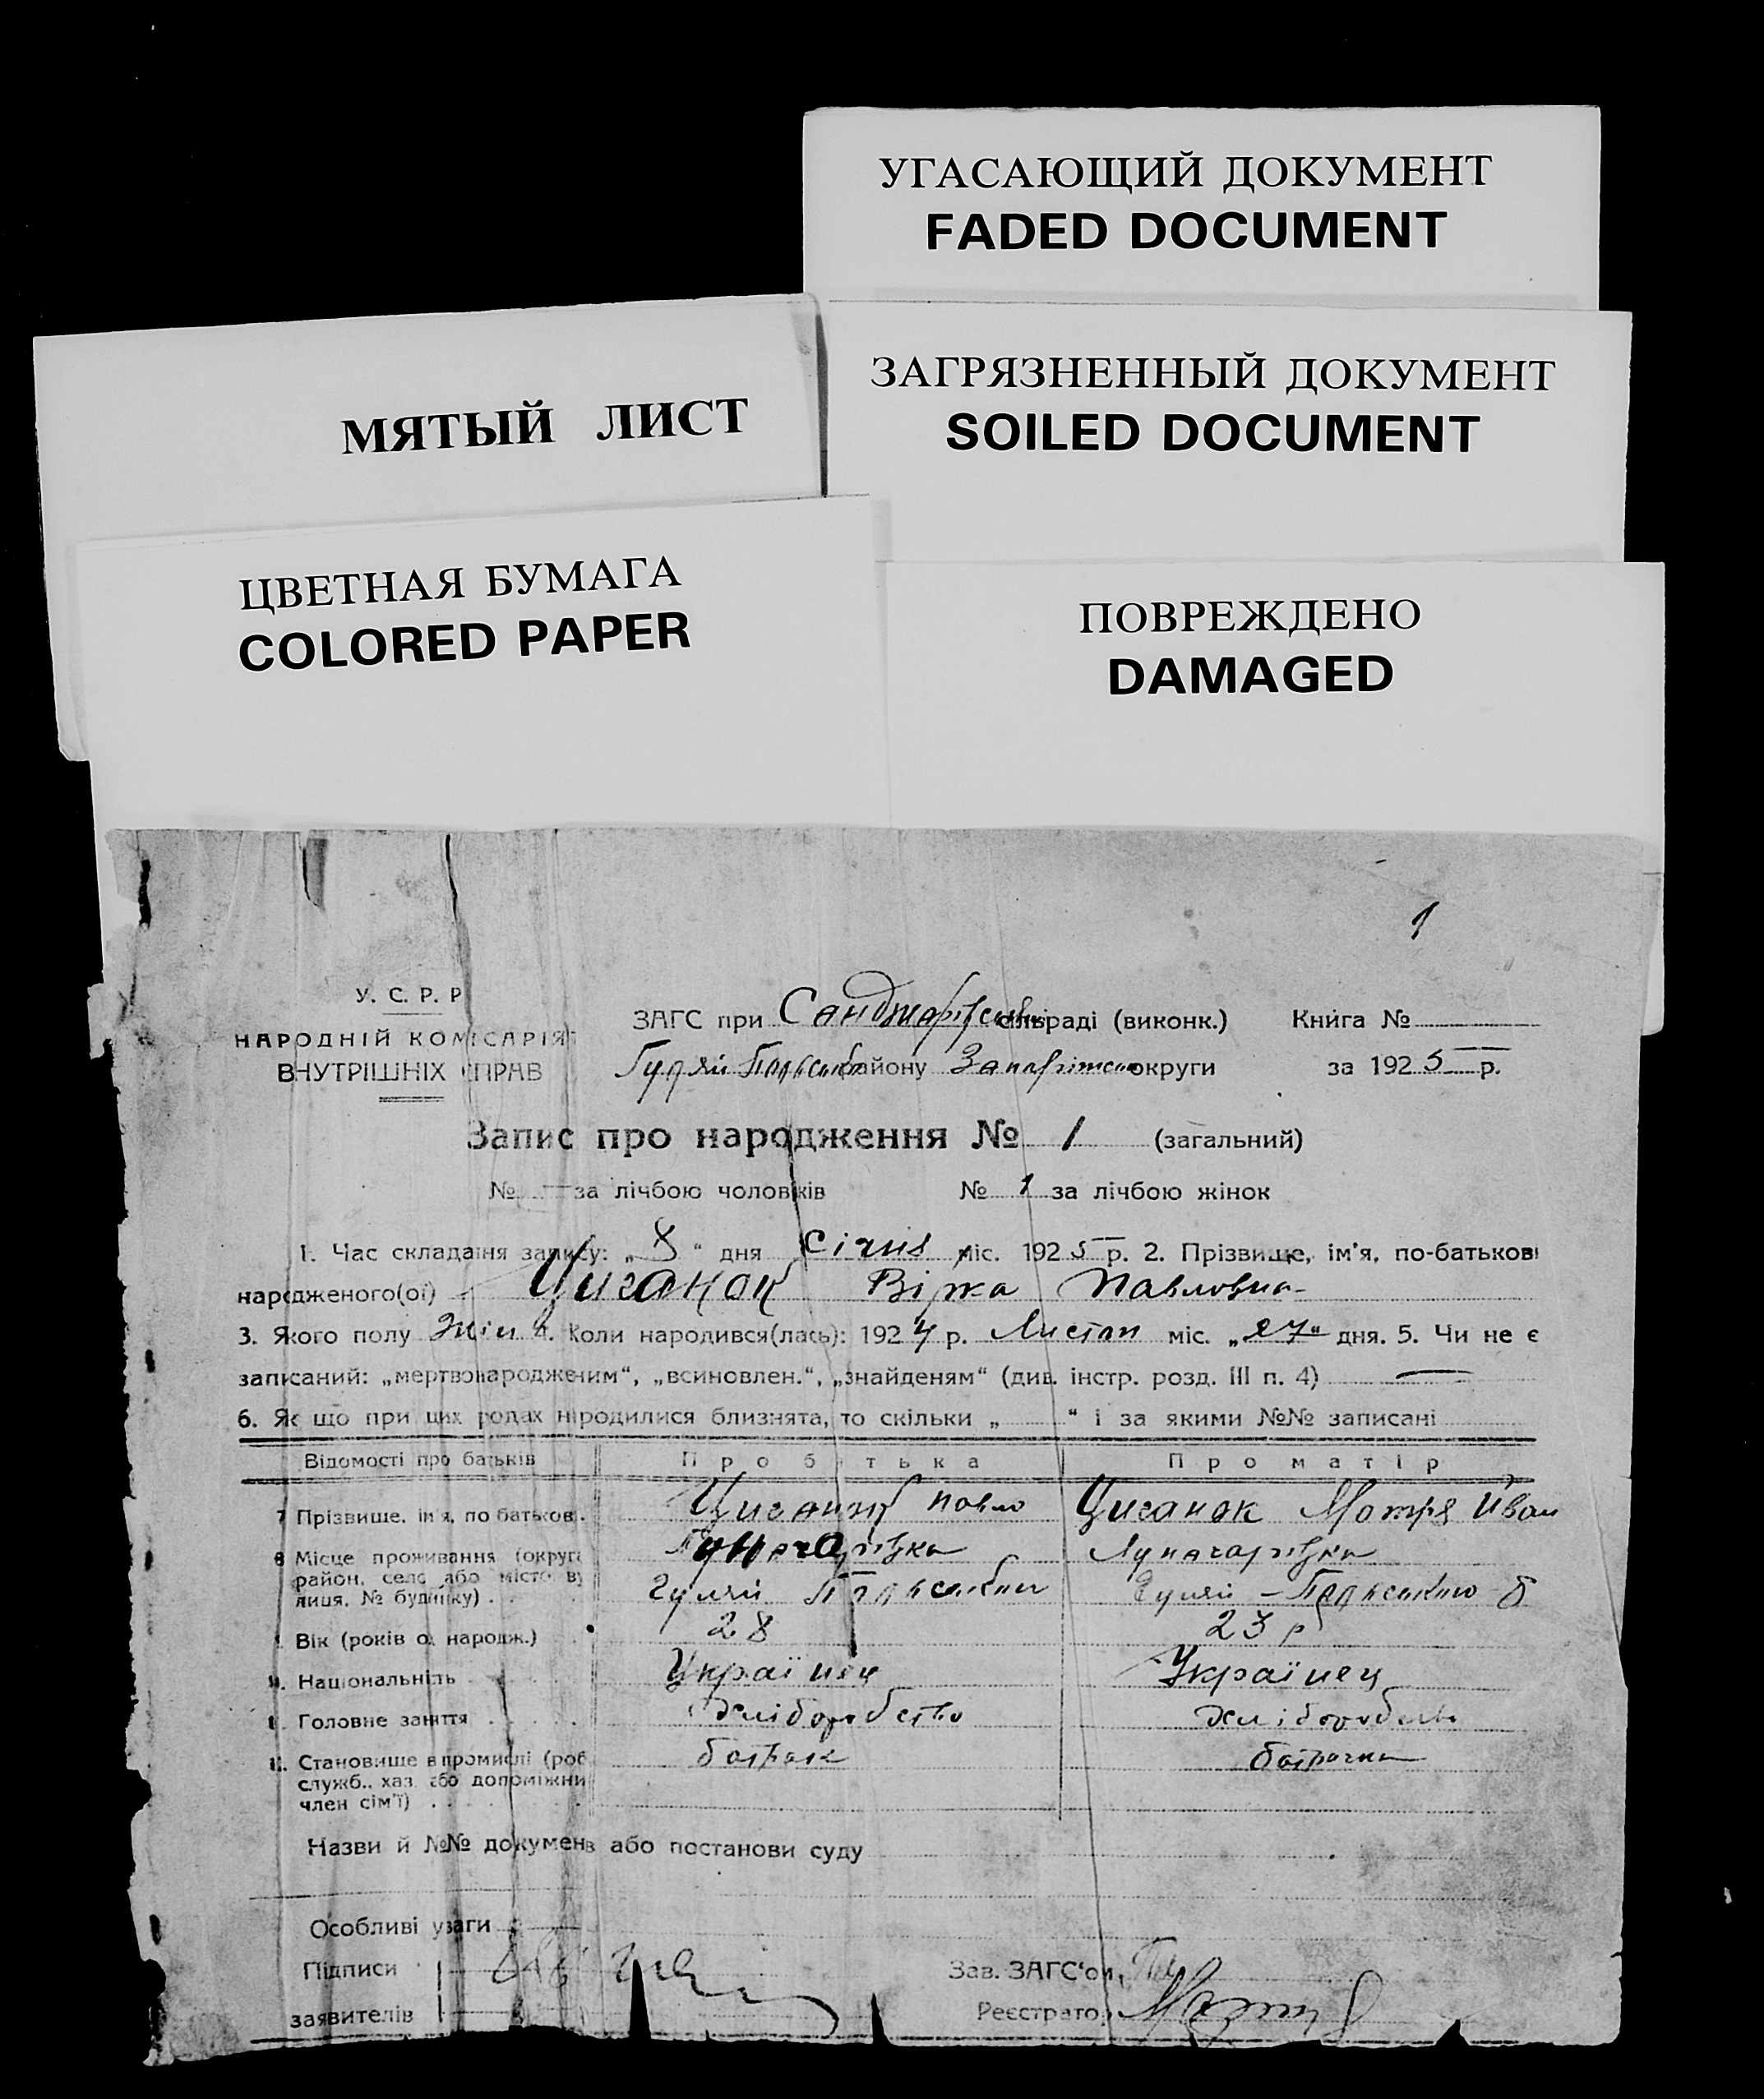 УГАСАЮЩИЙ ДОКУМЕНТ
FADED DOCUMENT
ЗАГРЯЗНЕННЫЙ ДОКУМЕНТ
SOILED DOCUMENT
МЯТЫЙ ЛИСТ
ЦВЕТНАЯ БУМАГА
COLORED PAPER
ПОВРЕЖДЕНО
DAMAGED
1
У. С. Р. Р
НАРОДНІЙ КОМІСАРІЯТ
ВНУТРІШНІХ СПРАВ
ЗАГС при сільраді (виконк.) Книга №
району округи за 1925 р.
Запис про народження № 1 (загальний)
№ — за лічбою чоловіків № 1 за лічбою жінок
1. Час складання запису: „8" дня Січня міс. 1925 р. 2. Прізвище, ім'я, по-батькові
народженого(ої) Циганок Вірка Павловна
3. Якого полу Жін 4. Коли народився(лась): 1924 р. Листоп міс. „27" дня. 5. Чи не є
записаний: „мертвонародженим", „всиновлен.", „знайденям" (див. інстр. розд. III п. 4) —
6. Як що при цих родах народилися близнята, то скільки „ " і за якими №№ записані
Відомості про батьків Про батька Про матір
7 Прізвище, ім'я, по батькові. Циганок Павло Циганок Мотря Иван
8 Місце проживання (округа
район, село або місто ву
лиця, № будинку) . . Гуляй Гуляй –
Вік (років од народж.) 28 23 р
Національність Українец Українец
Головне заняття . . . . . Хліборобство
Становище в промислі (роб
служб., хаз. або допоміжни
член сім'ї) . . . . батрак батрачка
Назви й №№ докумен в або постанови суду
Особливі уваги
Підписи Зав. ЗАГС'ом,
заявителів Реєстратор